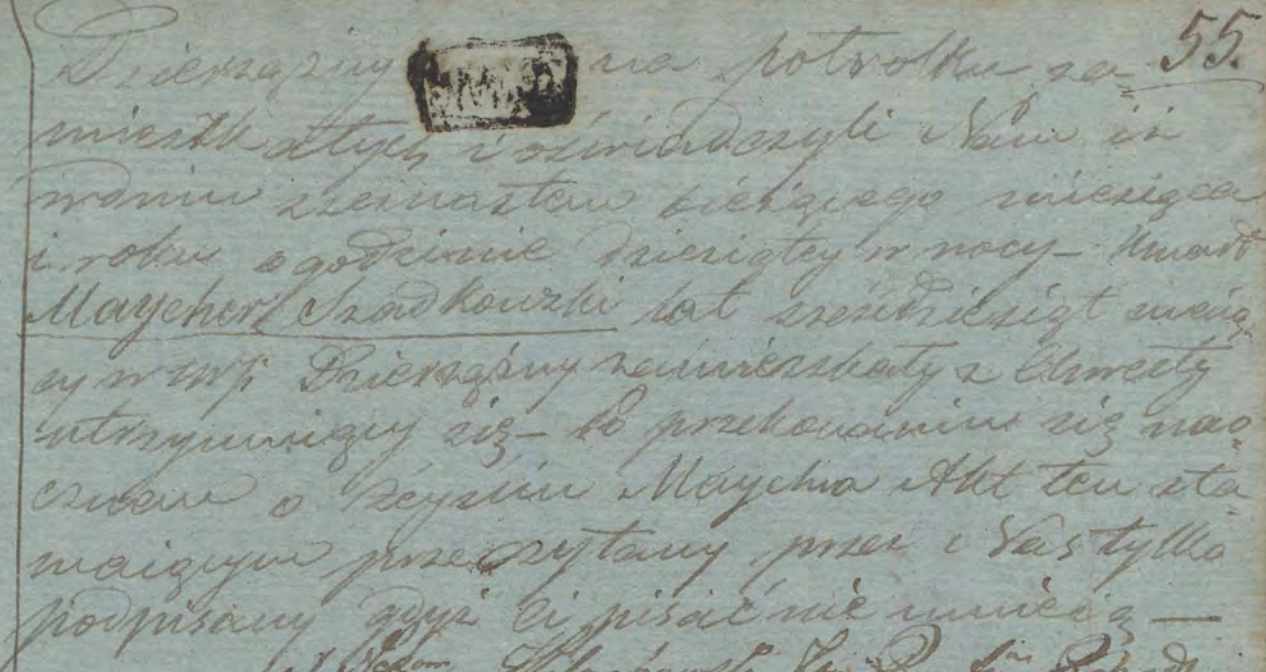 55.
Dzierzązny na potrolku za=
mieszkałych i oświadczyli Nam iż
w dniu bieżącego miesiąca
i roku o godzinie dziesiątey w nocy – Umarł
Maycher Szadkowski lat sześćdziesiąt maią=
cy w wsi Dzierzązny zamieszkały z
utrzymuiący się – Po przekonaniu się nao=
cznem o Zeyściu Maychra Akt ten sta
maiącym przeczytany przez Nas tylko
podpisany gdyż ci pisać nie umieią —